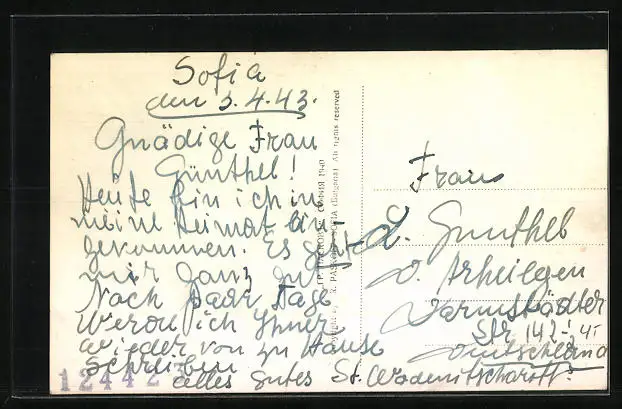 Sofia
den 3.4.43.
Gnädige Frau
Günthel!
Heute bin ich in
meine Heimat an
gekommen. Es geht
mir ganz gut
Nach paar Tage
Werde ich Ihnen
wieder von zu Hause
schreiben
alles gutes St.
Frau
Gunthel
Arheilgen
Darmstädter
Str 142
SOFIA (Bulgaria) All rights reserved